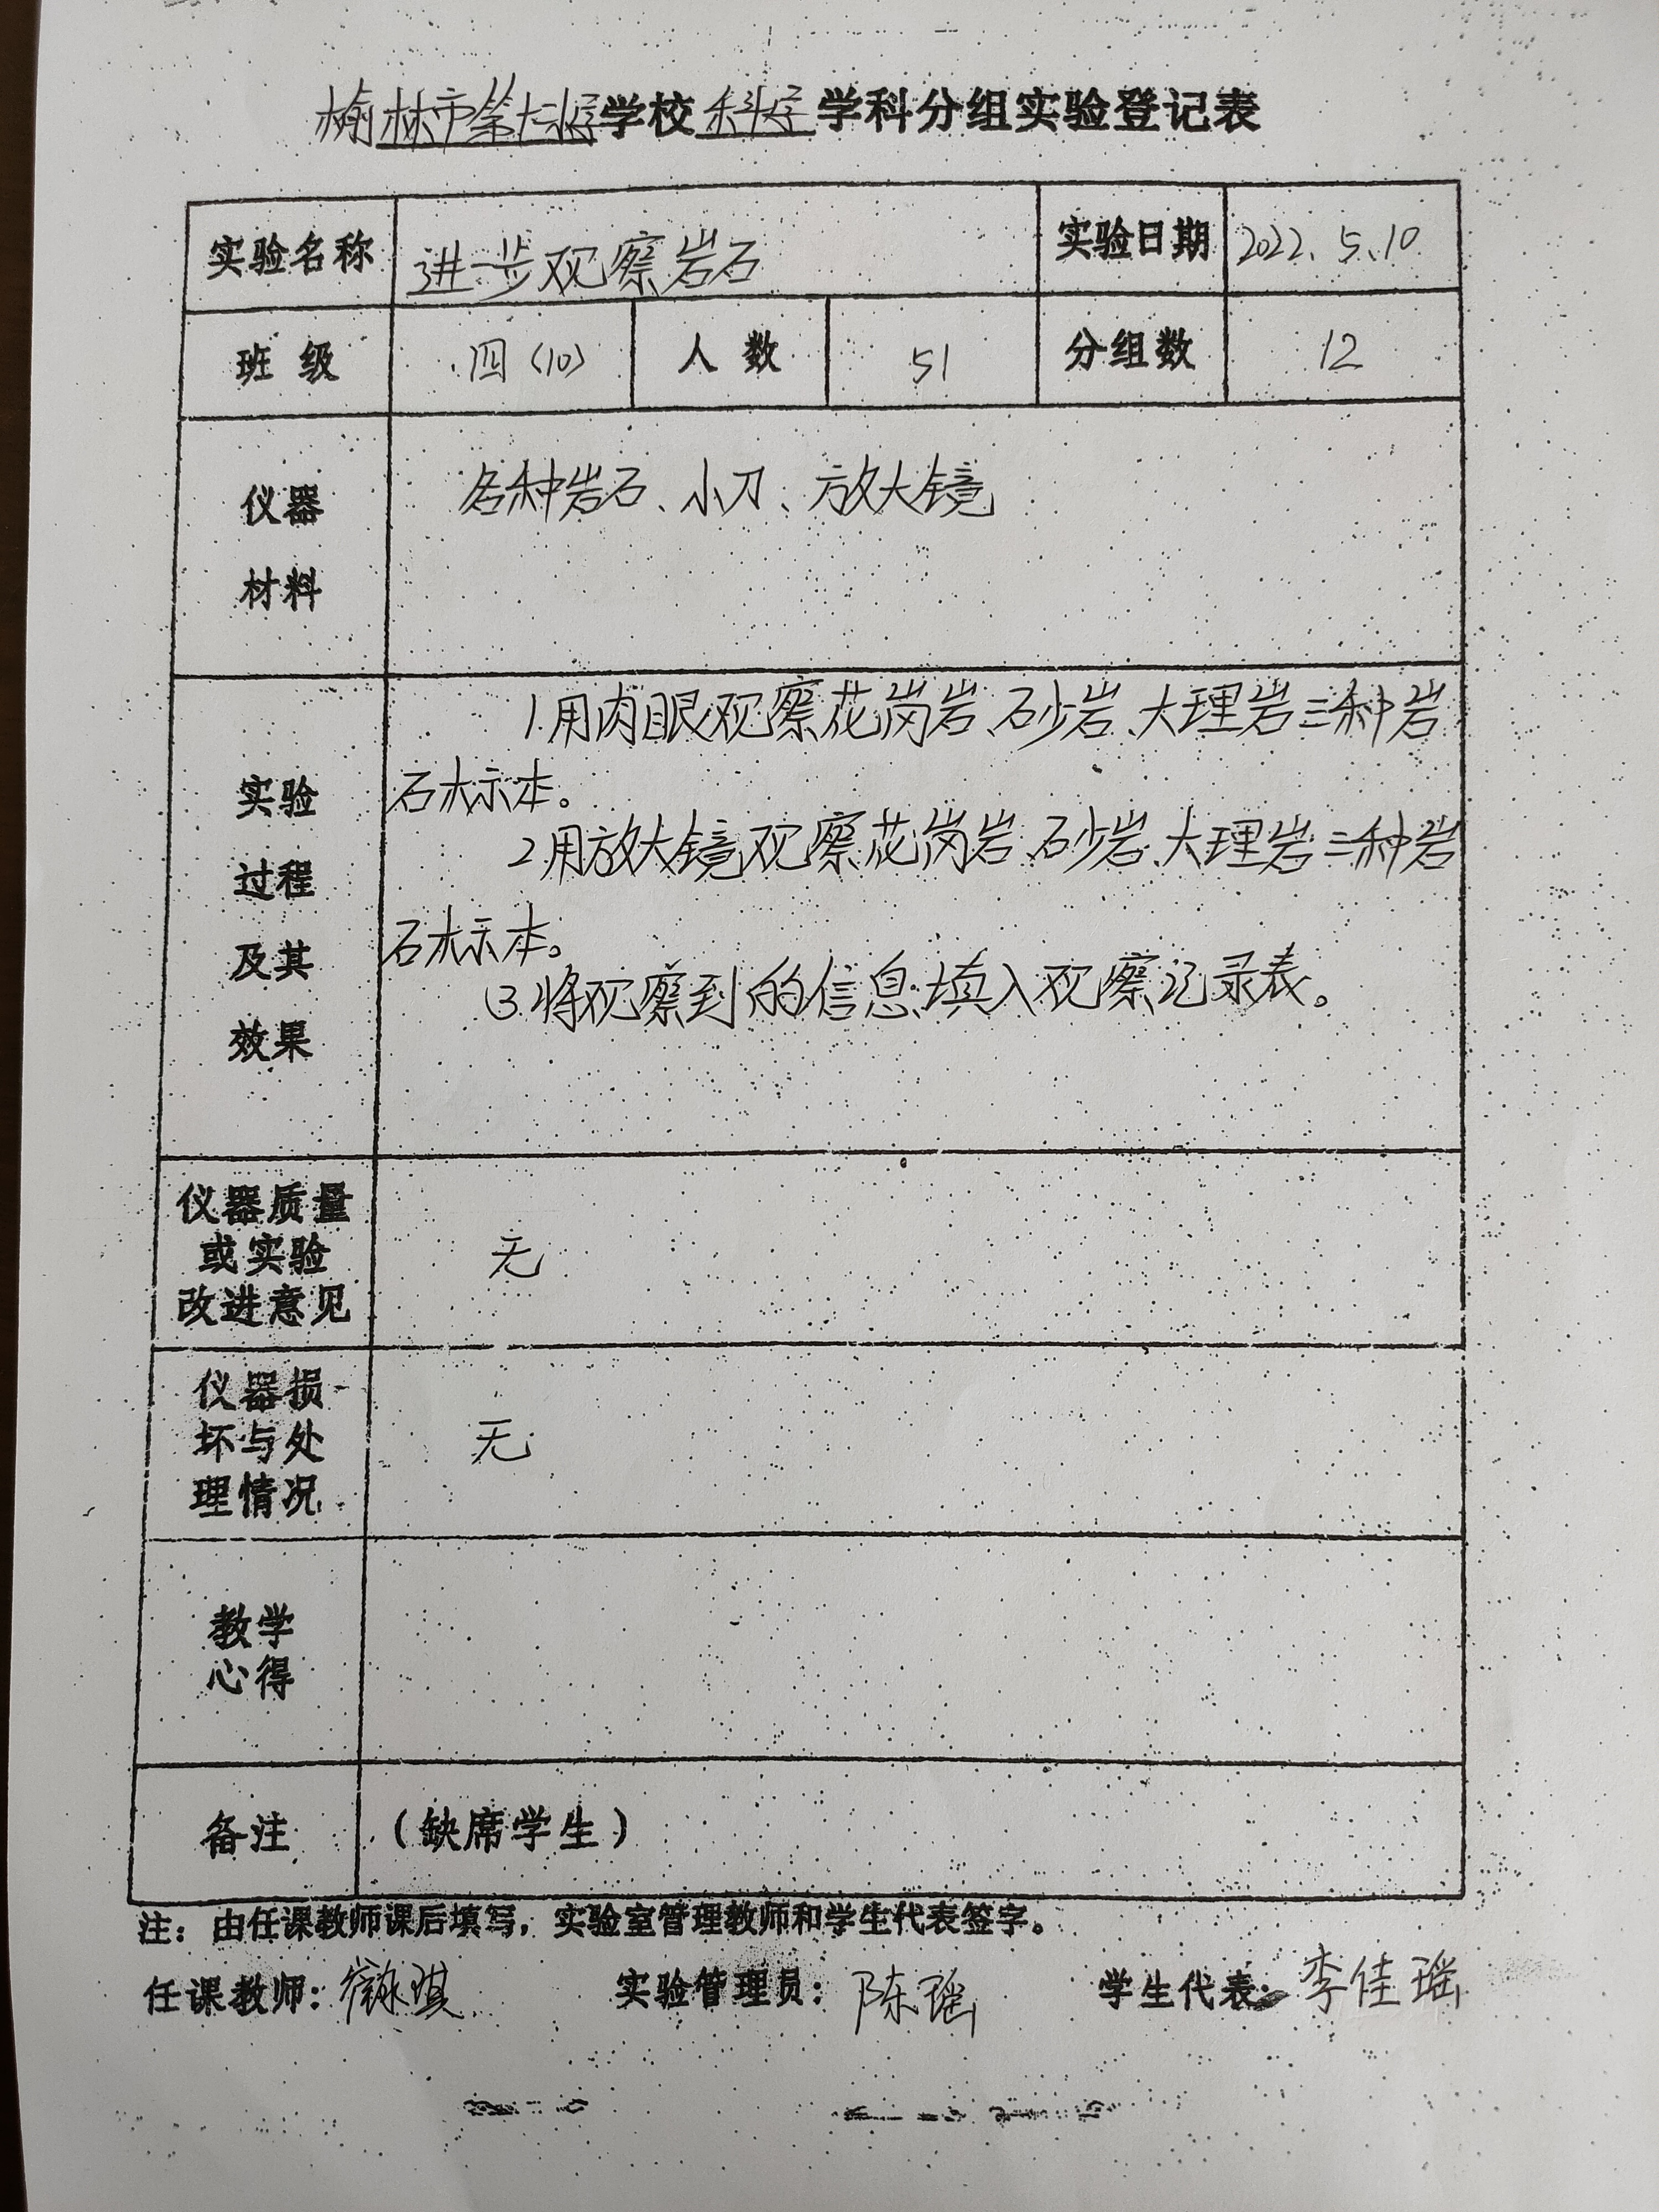 榆林市第十小学学校科学学科分组实验登记表
实验名称 进一步观察岩石 实验日期 2022.5.10
班级 四(10) 人数 51 分组数 12
仪器
材料
各种岩石、小刀、放大镜
实验
过程
及其
效果
1.用肉眼观察花岗岩、砂岩、大理岩三种岩
石标本。
2.用放大镜观察花岗岩、砂岩、大理岩三种岩
石标本。
3.将观察到的信息填入观察记录表。
仪器质量
或实验
改进意见
无
仪器损
坏与处
理情况
无
教学
心得
备注 (缺席学生)
注:由任课教师课后填写,实验室管理教师和学生代表签字。
任课教师: 琪 实验管理员:陈瑶 学生代表:李佳瑶